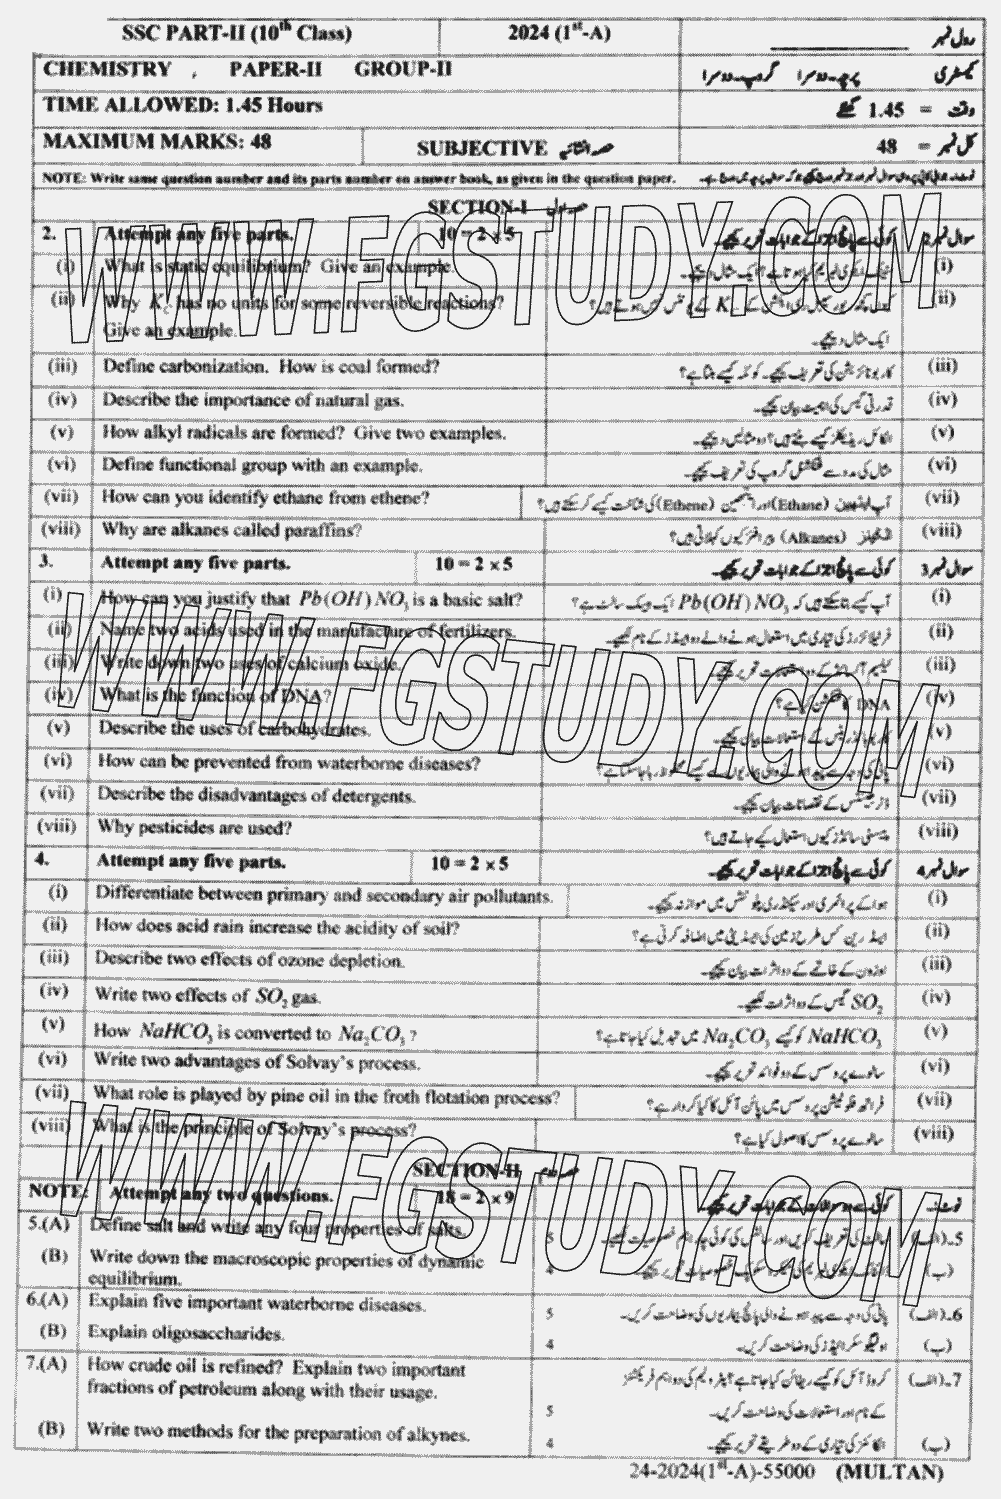 SSC PART-II (10th Class) 2024 (1st-A) رول نمبر
CHEMISTRY , PAPER-II GROUP-II کیمسٹری پرچہ۔دوسرا گروپ۔دوسرا
TIME ALLOWED: 1.45 Hours وقت = 1.45 گھنٹے
MAXIMUM MARKS: 48 SUBJECTIVE حصہ انشائیہ کل نمبر = 48
NOTE: Write same question number and its parts number on answer book, as given in the question paper.
SECTION-I حصہ اول
2. Attempt any five parts. 10 = 2 × 5 کوئی سے پانچ اجزا کے جوابات تحریر کیجیے۔ سوال نمبر 2
(i) What is static equilibrium? Give an example. (i)
(ii) Why Kc has no units for some reversible reactions? (ii)
Give an example. ایک مثال دیجیے۔
(iii) Define carbonization. How is coal formed? کاربونائزیشن کی تعریف کیجیے۔ کوئلہ کیسے بنتا ہے؟ (iii)
(iv) Describe the importance of natural gas. قدرتی گیس کی اہمیت بیان کیجیے۔ (iv)
(v) How alkyl radicals are formed? Give two examples. الکائل ریڈیکلز کیسے بنتے ہیں؟ دو مثالیں دیجیے۔ (v)
(vi) Define functional group with an example. مثال کی مدد سے فنکشنل گروپ کی تعریف کیجیے۔ (vi)
(vii) How can you identify ethane from ethene? آپ ایتھین (Ethane) اور ایتھین (Ethene) کی شناخت کیسے کر سکتے ہیں؟ (vii)
(viii) Why are alkanes called paraffins? الکینز (Alkanes) پیرافنز کیوں کہلاتی ہیں؟ (viii)
3. Attempt any five parts. 10 = 2 × 5 کوئی سے پانچ اجزا کے جوابات تحریر کیجیے۔ سوال نمبر 3
(i) How can you justify that Pb(OH)NO3 is a basic salt? آپ کیسے بتا سکتے ہیں کہ Pb(OH)NO3 ایک بیسک سالٹ ہے؟ (i)
(ii) Name two acids used in the manufacture of fertilizers. فرٹیلائزرز کی تیاری میں استعمال ہونے والے دو ایسڈز کے نام لکھیے۔ (ii)
(iii) Write down two uses of calcium oxide. کیلسیم آکسائیڈ کے دو استعمالات تحریر کیجیے۔ (iii)
(iv) What is the function of DNA? DNA کا فنکشن کیا ہے؟ (iv)
(v) Describe the uses of carbohydrates. کاربوہائڈریٹس کے استعمالات بیان کیجیے۔ (v)
(vi) How can be prevented from waterborne diseases? (vi)
(vii) Describe the disadvantages of detergents. ڈٹرجنٹس کے نقصانات بیان کیجیے۔ (vii)
(viii) Why pesticides are used? پیسٹی سائڈز کیوں استعمال کیے جاتے ہیں؟ (viii)
4. Attempt any five parts. 10 = 2 × 5 کوئی سے پانچ اجزا کے جوابات تحریر کیجیے۔ سوال نمبر 4
(i) Differentiate between primary and secondary air pollutants. ہوا کے پرائمری اور سیکنڈری پلوٹنٹس میں موازنہ کیجیے۔ (i)
(ii) How does acid rain increase the acidity of soil? ایسڈ رین کس طرح زمین کی ایسڈیٹی میں اضافہ کرتی ہے؟ (ii)
(iii) Describe two effects of ozone depletion. اوزون کے خاتمے کے دو اثرات بیان کیجیے۔ (iii)
(iv) Write two effects of SO2 gas. SO2 گیس کے دو اثرات لکھیے۔ (iv)
(v) How NaHCO3 is converted to Na2CO3 ? NaHCO3 کو کیسے Na2CO3 میں تبدیل کیا جاتا ہے؟ (v)
(vi) Write two advantages of Solvay's process. سالوے پروسس کے دو فوائد تحریر کیجیے۔ (vi)
(vii) What role is played by pine oil in the froth flotation process? فراتھ فلوٹیشن پروسس میں پائن آئل کا کیا کردار ہے؟ (vii)
(viii) What is the principle of Solvay's process? سالوے پروسس کا اصول کیا ہے؟ (viii)
SECTION-II حصہ دوم
NOTE: Attempt any two questions. 18 = 2 × 9 کوئی سے دو سوالات کے جوابات تحریر کیجیے۔ نوٹ:۔
5.(A) Define salt and write any four properties of salts. 5 5۔(الف)
(B) Write down the macroscopic properties of dynamic 4 (ب)
equilibrium.
6.(A) Explain five important waterborne diseases. 5 پانی کی وجہ سے پیدا ہونے والی پانچ بیماریوں کی وضاحت کریں۔ 6۔(الف)
(B) Explain oligosaccharides. 4 اولیگوسکرائیڈز کی وضاحت کریں۔ (ب)
7.(A) How crude oil is refined? Explain two important کروڈ آئل کو کیسے ریفائن کیا جاتا ہے؟ پٹرولیم کی دو اہم فریکشنز 7۔(الف)
fractions of petroleum along with their usage. 5 کے نام اور استعمالات کی وضاحت کریں۔
(B) Write two methods for the preparation of alkynes. 4 الکائنز کی تیاری کے دو طریقے تحریر کیجیے۔ (ب)
24-2024(1st-A)-55000 (MULTAN)
WWW.FGSTUDY.COM
WWW.FGSTUDY.COM
WWW.FGSTUDY.COM